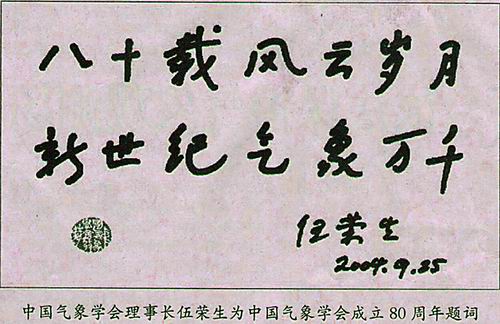 八十载风云岁月
新世纪气象万千
伍荣生
2004.9.25
中国气象学会理事长伍荣生为中国气象学会成立80周年题词